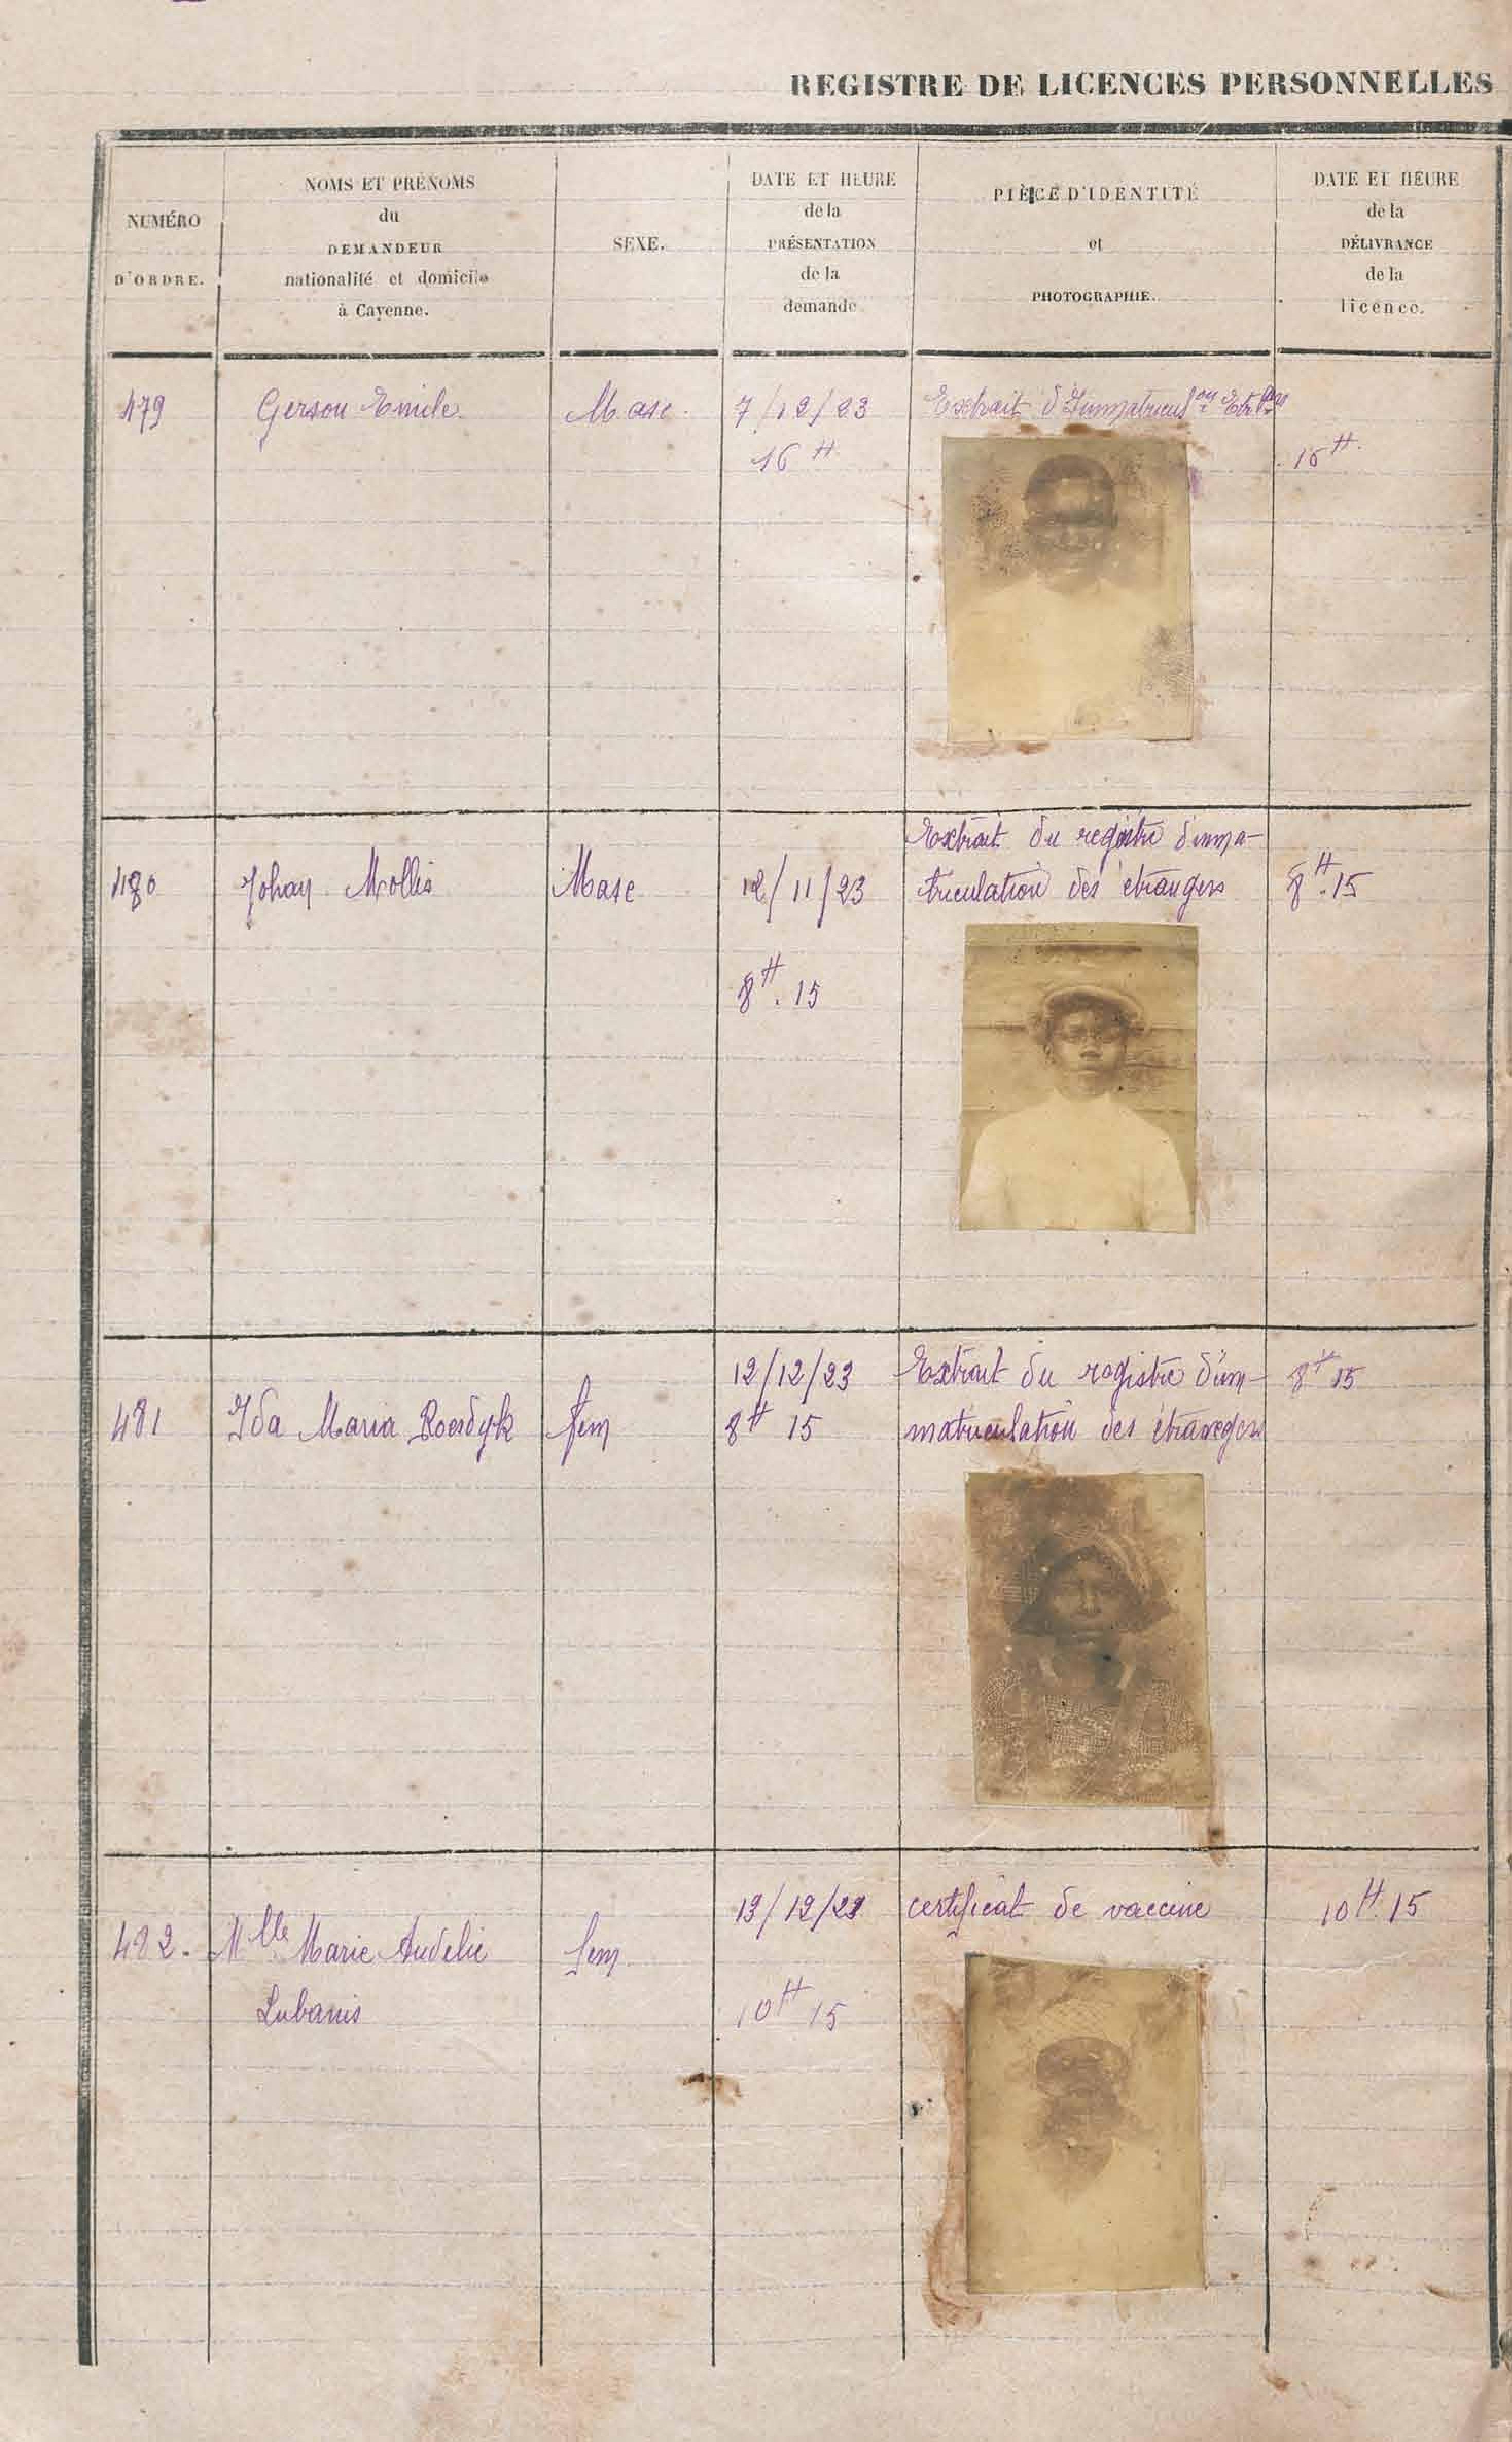 REGISTRE DE LICENCES PERSONNELLES
NUMÉRO
D'ORDRE.
NOMS ET PRÉNOMS
du
DEMANDEUR
nationalité et domicile
à Cayenne.
SEXE.
DATE ET HEURE
de la
PRÉSENTATION
de la
demande
PIÈCE D'IDENTITÉ
et
PHOTOGRAPHIE.
DATE ET HEURE
de la
DÉLIVRANCE
de la
licence.
479 Gerson Emile Masc. 7/12/23 Extrait d'Immatricul
16 H 16 H.
Extrait du registre d'imma-
480 Johan Mollis Masc 12/11/23 triculation des étrangers 8 H. 15
8 H. 15
12/12/23 Extrait du registre d'im- 8 H 15
481 Ida Maria Roesdyk fem 8 H 15 matriculation des étrangers
13/12/23 certificat de vaccine 10 H. 15
482. Mlle Marie Audelie fem.
Lubanis 10 H 15